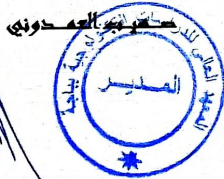 العمدوني
المعهد العالي للدراسات التكنولوجية بباجة
المدير